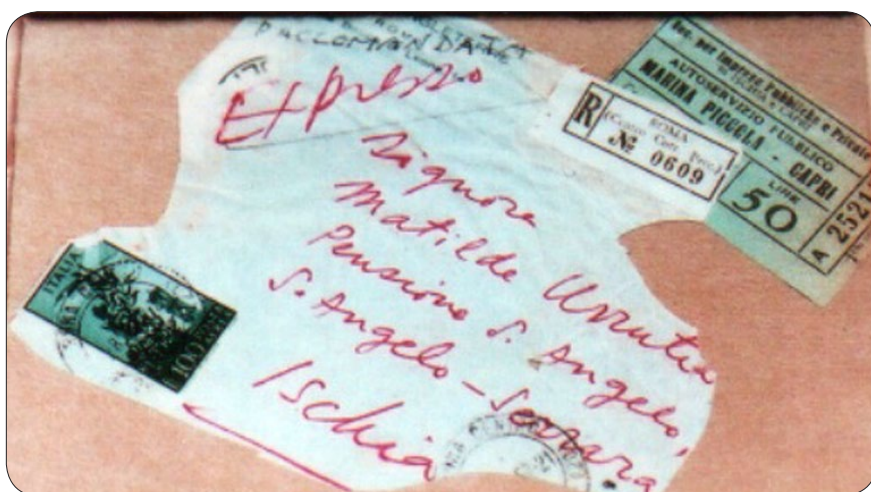 RACCOMANDATA
Expresso
Signora
Matilde Urrutia
Pensione S. Angelo,
S. Angelo - Serrara
Ischia
ITALIA
L.100
R
ROMA
(Centro Corr. Pac.)
№ 0609
Soc. per Imprese Pubbliche e Private
AUTOSERVIZIO PUBBLICO
MARINA PICCOLA - CAPRI
LIRE
50
A 2521